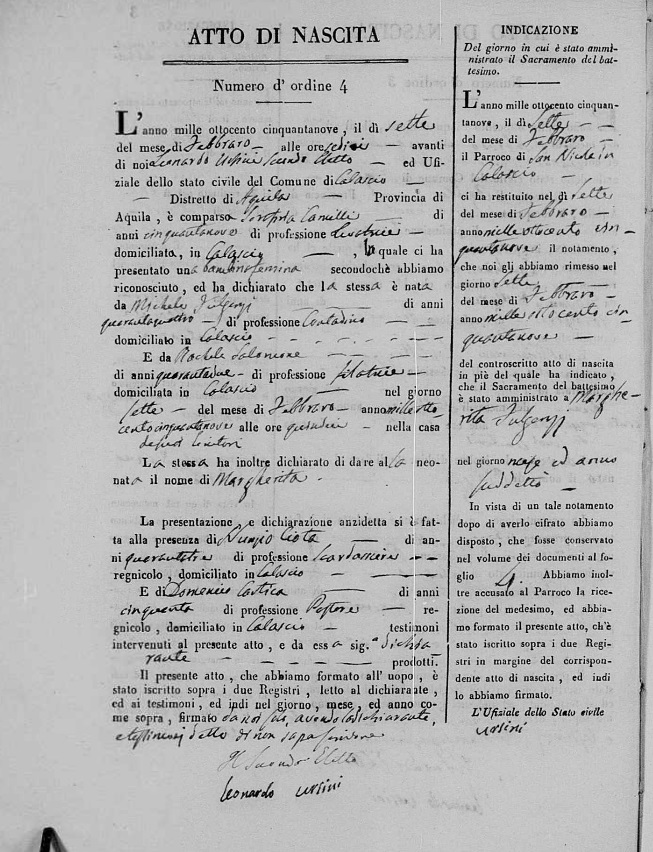 ATTO DI NASCITA
Numero d' ordine 4
L'anno mille ottocento cinquantanove, il dì sette
del mese di Febbraro — alle ore sedici — avanti
di noi Leonardo Ursini Secondo Eletto — ed Ufi-
ziale dello stato civile del Comune di Calascio —
— Distretto di Aquila — Provincia di
Aquila, è comparsa Camilli — di
anni cinquantanove di professione Levatrice —
domiciliata, in Calascio — , la quale ci ha
presentato una bambina femina secondochè abbiamo
riconosciuto, ed ha dichiarato che la stessa è nata
da Michele Fulgenzj — di anni
quarantaquattro — di professione Contadino —
domiciliato in Calascio —
E da Rachele Salomone —
di anni quarantadue - di professione filatrice —
domiciliata in Calascio — nel giorno
sette — del mese di Febbraro — anno mille otto-
cento cinquantanove alle ore quindici — nella casa
genitori
La stessa ha inoltre dichiarato di dare alla neo-
nata il nome di Margherita -
La presentazione, e dichiarazione anzidetta si è fat-
ta alla presenza di Nunzio Ciota — di an-
ni quarantatre di professione Cardatore —
regnicolo, domiciliato in Calascio —
E di Domenico Cortica — di anni
cinquanta di professione Pastore — re-
gnicolo, domiciliato in Calascio — testimoni
intervenuti al presente atto, e da essa sig.ª Dichia-
rante — prodotti.
Il presente atto, che abbiamo formato all' uopo, è
stato iscritto sopra i due Registri, letto al dichiarante,
ed ai testimoni, ed indi nel giorno, mese, ed anno co-
me sopra, firmato da noi avendo la dichiarante,
e testimonj detto di non saper scrivere
Il Secondo Eletto
Leonardo Ursini
INDICAZIONE
Del giorno in cui è stato ammi-
nistrato il Sacramento del bat-
tesimo.
L'anno mille ottocento cinquan-
tanove, il dì sette —
del mese di Febbraro —
il Parroco di San Nicola in
Calascio —
ci ha restituito nel dì sette
del mese di Febbraro —
anno mille ottocento cin-
quantanove il notamento,
che noi gli abbiamo rimesso nel
giorno sette —
del mese di Febbraro —
anno mille ottocento cin
quantanove —
del controscritto atto di nascita
in piè del quale ha indicato,
che il Sacramento del battesimo
è stato amministrato a Marghe-
rita Fulgenzj
nel giorno mese ed anno
suddetto —
In vista di un tale notamento
dopo di averlo cifrato abbiamo
disposto, che fosse conservato
nel volume dei documenti al fo-
glio 4. Abbiamo inol-
tre accusato al Parroco la rice-
zione del medesimo, ed abbia-
mo formato il presente atto, ch'è
stato iscritto sopra i due Regi-
stri in margine del corrispon-
dente atto di nascita, ed indi
lo abbiamo firmato.
L'Ufiziale dello Stato civile
Ursini